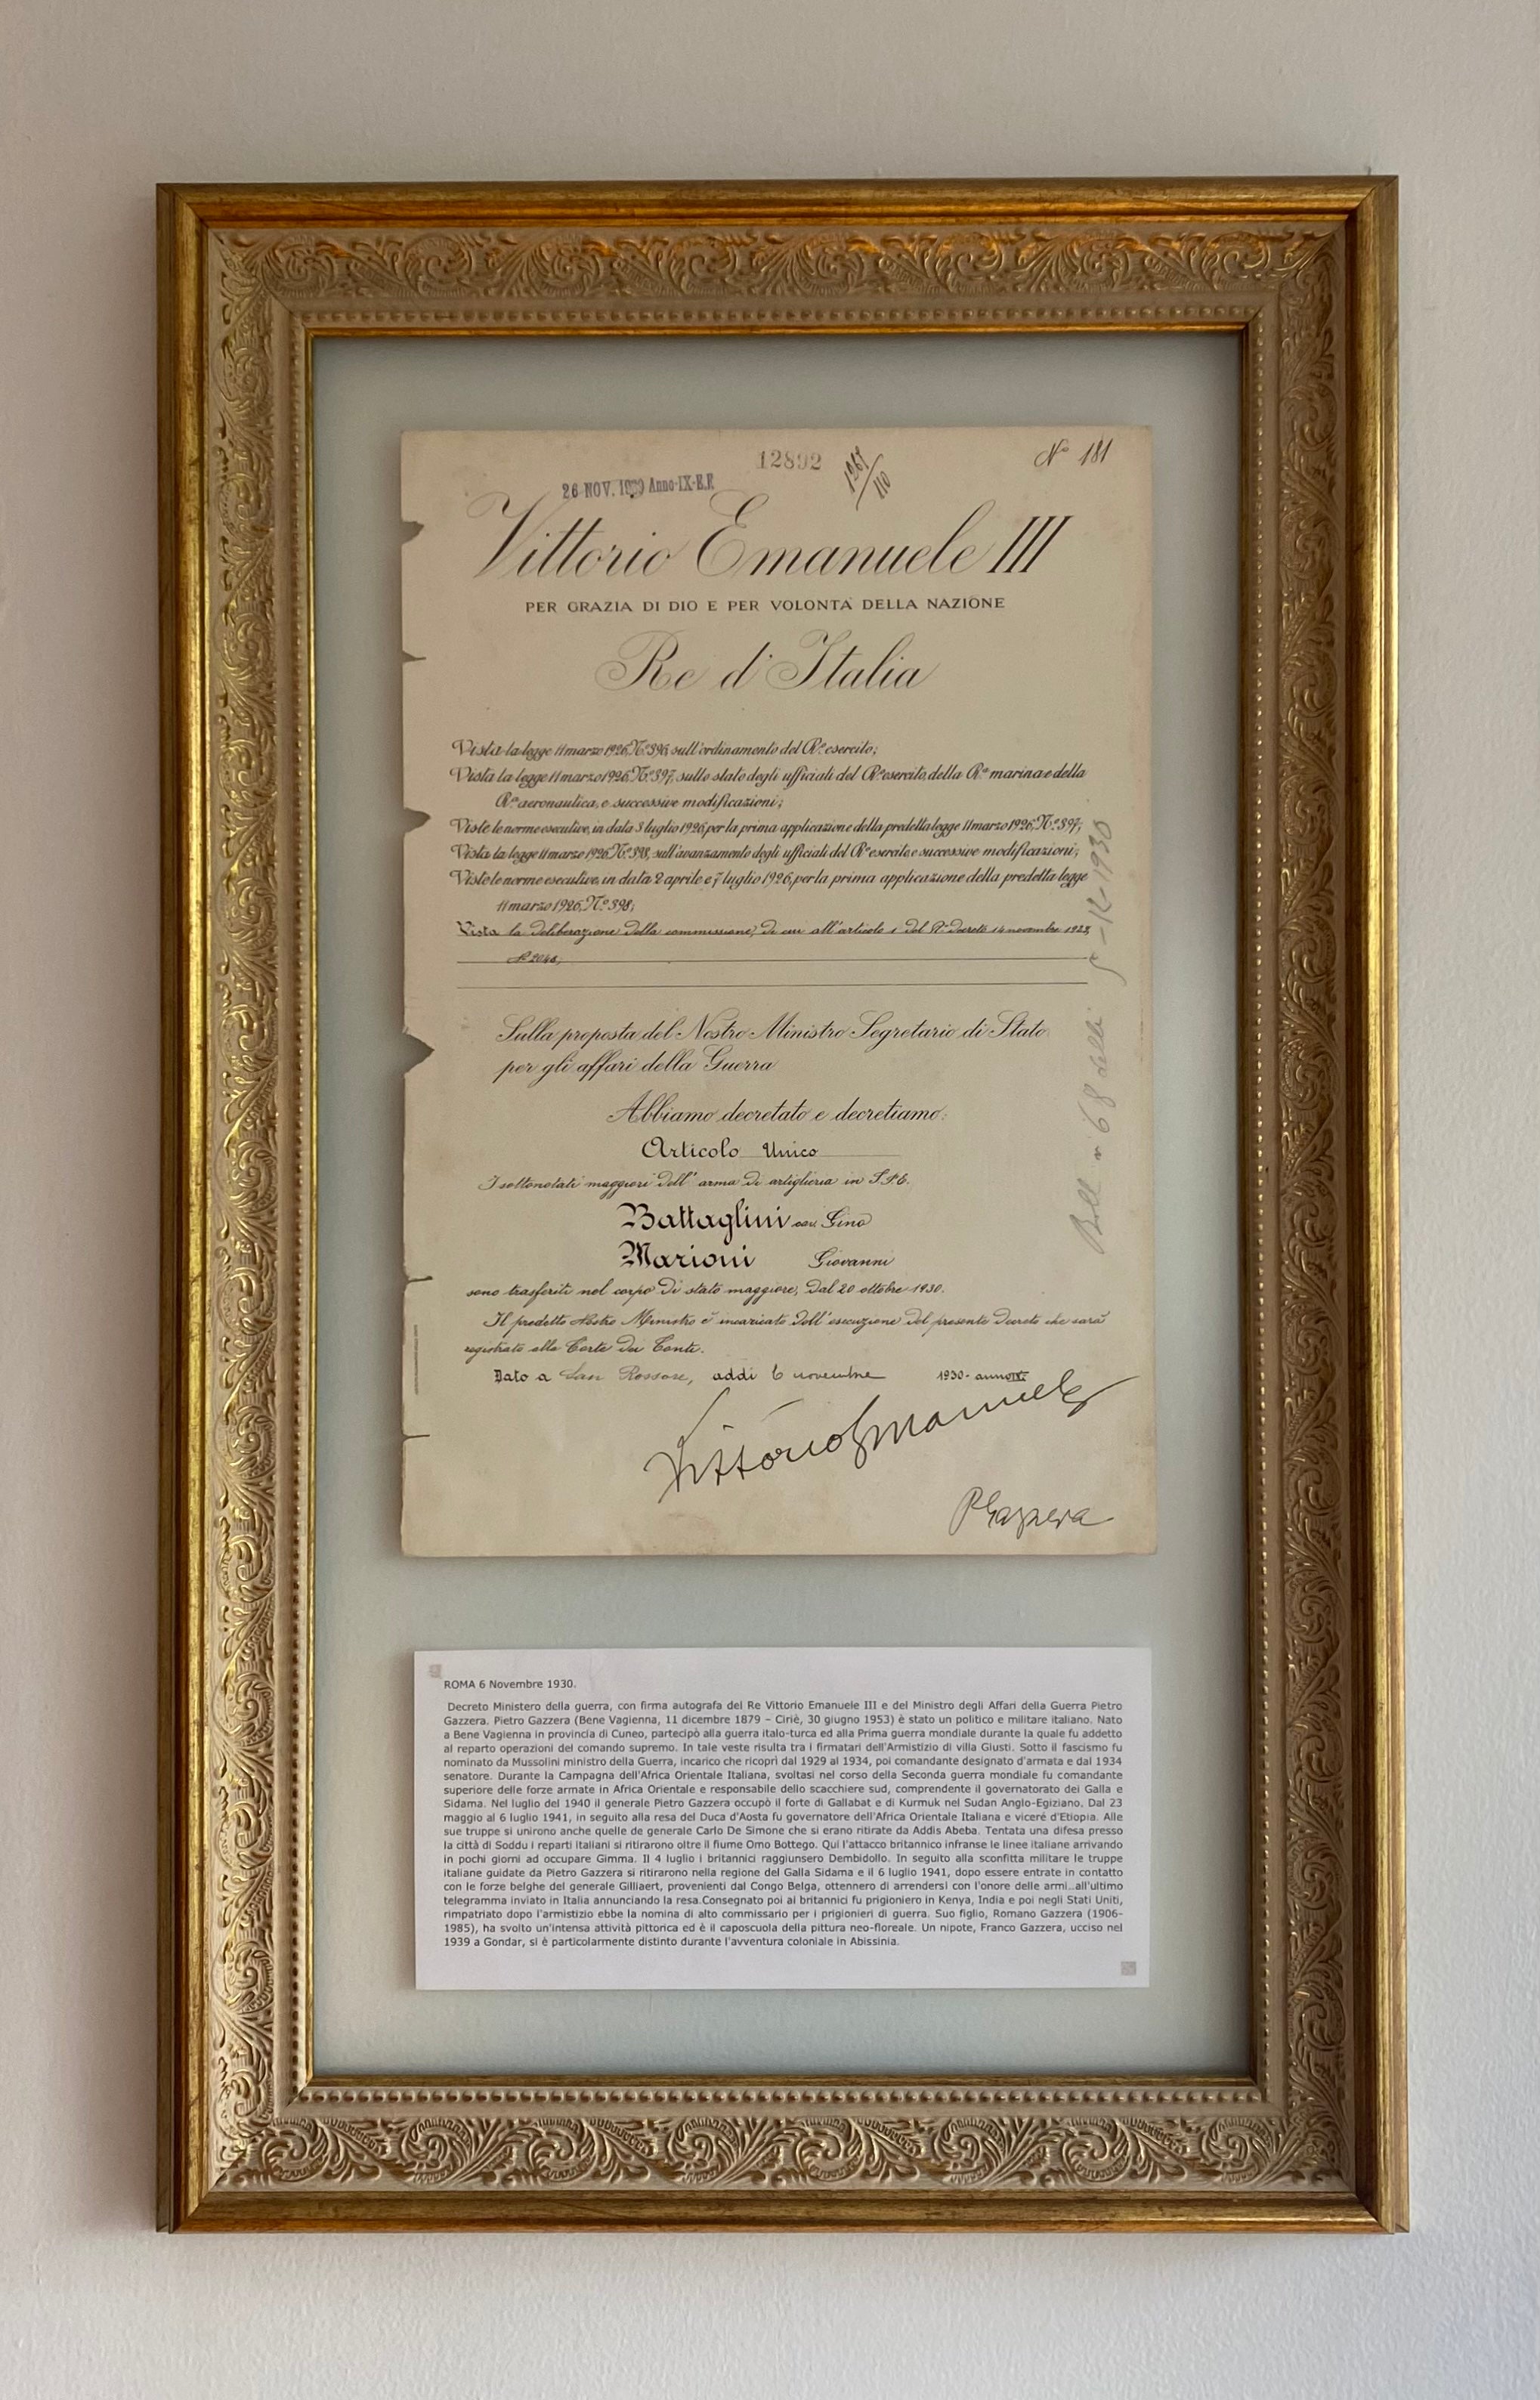 12892
Nº 181
1967/110
26 NOV. 1930 Anno-IX-E.F.
Vittorio Emanuele III
PER GRAZIA DI DIO E PER VOLONTÀ DELLA NAZIONE
Re d'Italia
Vista la legge 11 marzo 1926, Nº 396, sull'ordinamento del Rº esercito;
Vista la legge 11 marzo 1926, Nº 397, sullo stato degli ufficiali del Rº esercito, della Rª marina e della
Rª aeronautica, e successive modificazioni;
Viste le norme esecutive, in data 3 luglio 1926, per la prima applicazione della predetta legge 11 marzo 1926, Nº 397;
Vista la legge 11 marzo 1926, Nº 398, sull'avanzamento degli ufficiali del Rº esercito e successive modificazioni;
Viste le norme esecutive, in data 2 aprile e 7 luglio 1926, per la prima applicazione della predetta legge
11 marzo 1926, Nº 398;
Vista la deliberazione della commissione, di cui all'articolo 1 del Rº decreto 14 novembre 1928,
Nº
Sulla proposta del Nostro Ministro Segretario di Stato
per gli affari della Guerra
Abbiamo decretato e decretiamo:
Articolo Unico
I sottonotati maggiori dell'arma di artiglieria in S.P.E.
Battaglini cav. Gino
Marioni Giovanni
sono trasferiti nel corpo di stato maggiore, dal 20 ottobre 1930.
Il predetto Nostro Ministro è incaricato dell'esecuzione del presente decreto che sarà
registrato alla Corte dei Conti.
Dato a San Rossore, addì 6 novembre 1930-anno IX
Vittorio Emanuele
P Gazzera
Boll n 68 delli 5-12-1930
ROMA 6 Novembre 1930.
Decreto Ministero della guerra, con firma autografa del Re Vittorio Emanuele III e del Ministro degli Affari della Guerra Pietro
Gazzera. Pietro Gazzera (Bene Vagienna, 11 dicembre 1879 – Ciriè, 30 giugno 1953) è stato un politico e militare italiano. Nato
a Bene Vagienna in provincia di Cuneo, partecipò alla guerra italo-turca ed alla Prima guerra mondiale durante la quale fu addetto
al reparto operazioni del comando supremo. In tale veste risulta tra i firmatari dell'Armistizio di villa Giusti. Sotto il fascismo fu
nominato da Mussolini ministro della Guerra, incarico che ricoprì dal 1929 al 1934, poi comandante designato d'armata e dal 1934
senatore. Durante la Campagna dell'Africa Orientale Italiana, svoltasi nel corso della Seconda guerra mondiale fu comandante
superiore delle forze armate in Africa Orientale e responsabile dello scacchiere sud, comprendente il governatorato dei Galla e
Sidama. Nel luglio del 1940 il generale Pietro Gazzera occupò il forte di Gallabat e di Kurmuk nel Sudan Anglo-Egiziano. Dal 23
maggio al 6 luglio 1941, in seguito alla resa del Duca d'Aosta fu governatore dell'Africa Orientale Italiana e viceré d'Etiopia. Alle
sue truppe si unirono anche quelle de generale Carlo De Simone che si erano ritirate da Addis Abeba. Tentata una difesa presso
la città di Soddu i reparti italiani si ritirarono oltre il fiume Omo Bottego. Qui l'attacco britannico infranse le linee italiane arrivando
in pochi giorni ad occupare Gimma. Il 4 luglio i britannici raggiunsero Dembidollo. In seguito alla sconfitta militare le truppe
italiane guidate da Pietro Gazzera si ritirarono nella regione del Galla Sidama e il 6 luglio 1941, dopo essere entrate in contatto
con le forze belghe del generale Gilliaert, provenienti dal Congo Belga, ottennero di arrendersi con l'onore delle armi..all'ultimo
telegramma inviato in Italia annunciando la resa.Consegnato poi ai britannici fu prigioniero in Kenya, India e poi negli Stati Uniti,
rimpatriato dopo l'armistizio ebbe la nomina di alto commissario per i prigionieri di guerra. Suo figlio, Romano Gazzera (1906-
1985), ha svolto un'intensa attività pittorica ed è il caposcuola della pittura neo-floreale. Un nipote, Franco Gazzera, ucciso nel
1939 a Gondar, si è particolarmente distinto durante l'avventura coloniale in Abissinia.